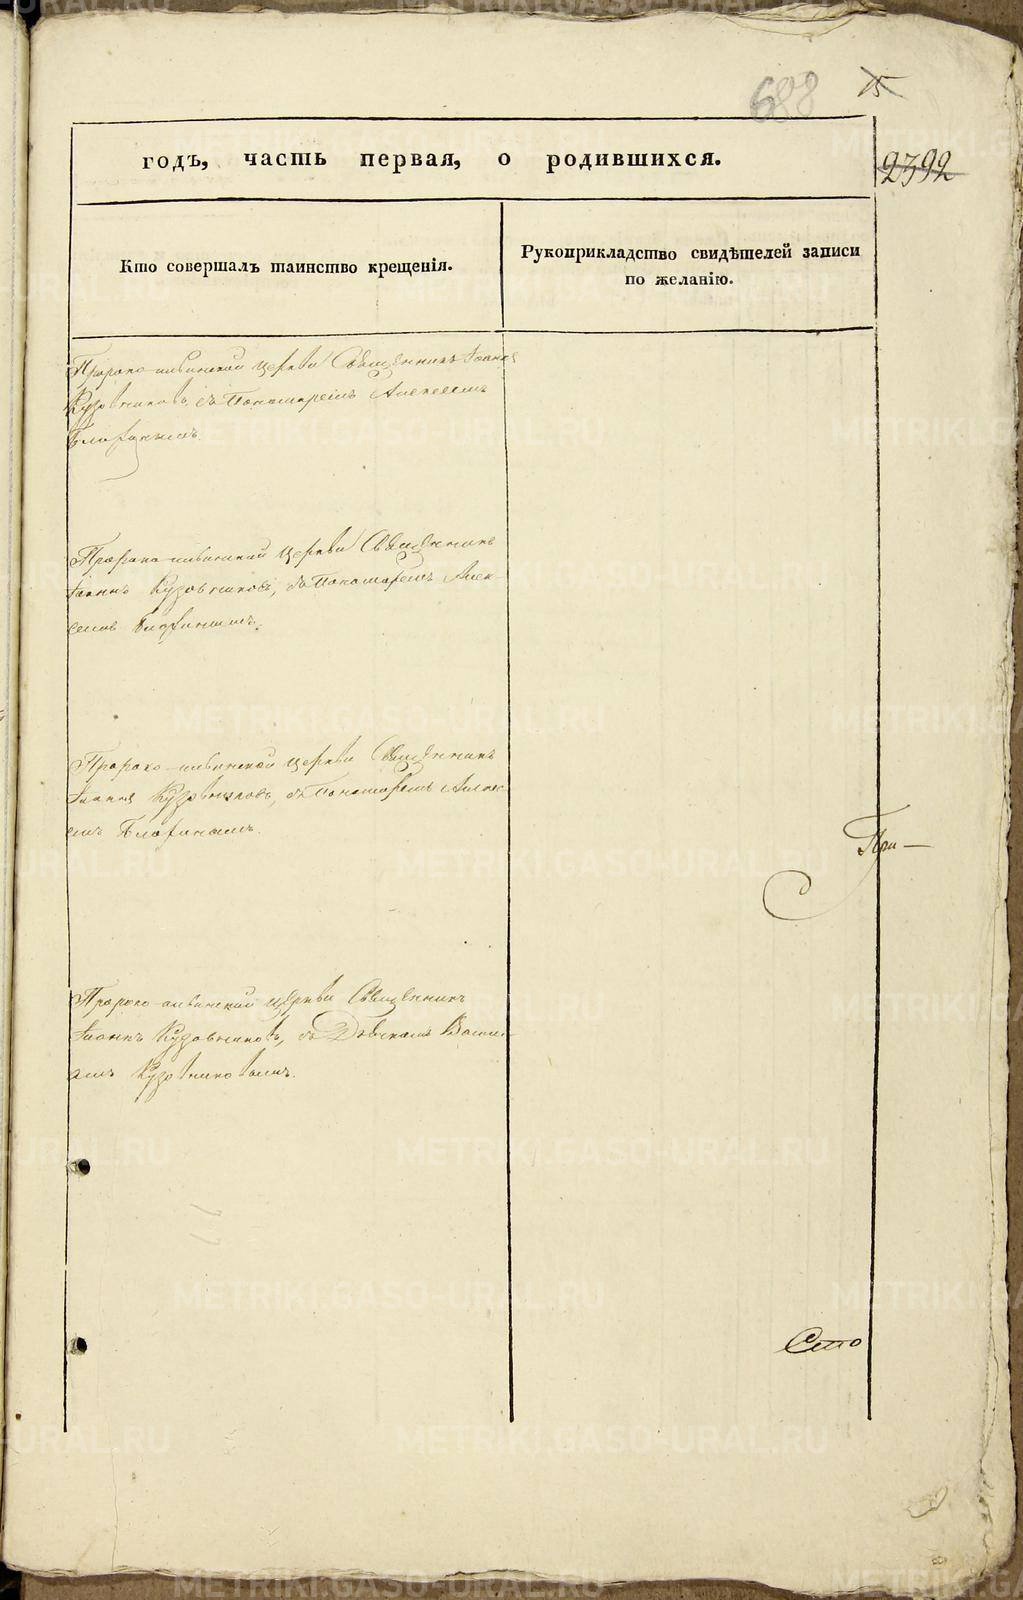 688 15
годъ, часть первая, о родившихся.
2392
Кто совершалъ таинство крещенія.
Рукоприкладство свидѣтелей записи
по желанію.
Пророко-ильинской церкви Священникъ Іоаннъ
Кузовниковъ, съ Пономаремъ Алексеемъ
Пророко-ильинской церкви Священникъ
Іоаннъ Кузовниковъ, съ Пономаремъ Алек-
Пророко-ильинской церкви Священникъ
Іоаннъ Кузовниковъ, съ Пономаремъ Алек-
Пророко-ильинской церкви Священникъ
Іоаннъ Кузовниковъ, съ Дьячкомъ Васи-
Кузовниковымъ.
При-
Сто
METRIKI.GASO-URAL.RU